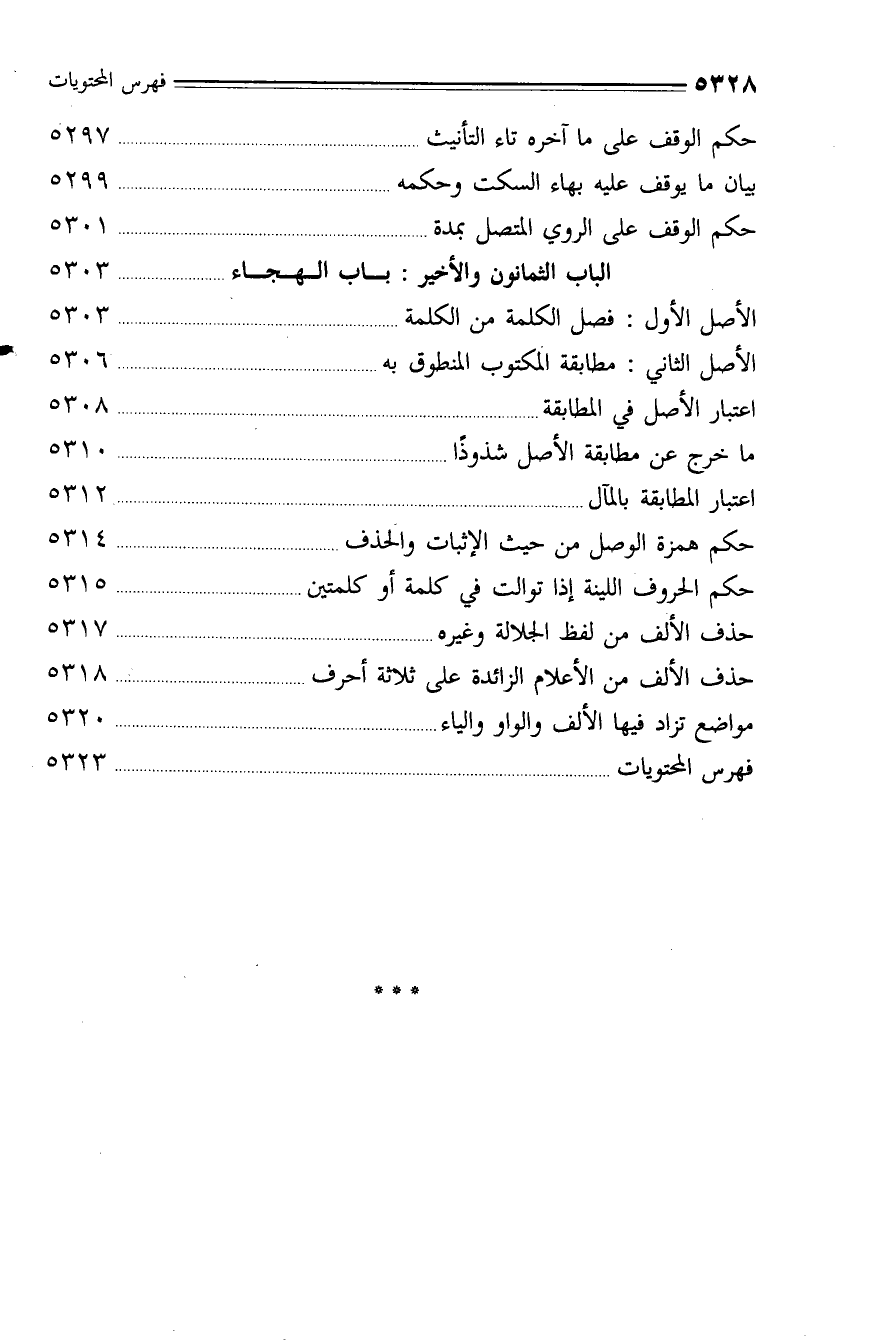 ٥٣٢٨ فهرس المحتويات
حكم الوقف على ما آخره تاء التأنيث ٥٢٩٧
بيان ما يوقف عليه بهاء السكت وحكمه ٥٢٩٩
حكم الوقف على الروي المتصل بمدة ٥٣٠١
الباب الثمانون والأخير : بـاب الـهـجـاء ٥٣٠٣
الأصل الأول : فصل الكلمة من الكلمة ٥٣٠٣
الأصل الثاني : مطابقة المكتوب المنطوق به ٥٣٠٦
اعتبار الأصل في المطابقة ٥٣٠٨
ما خرج عن مطابقة الأصل شذوذًا ٥٣١٠
اعتبار المطابقة بالمآل ٥٣١٢
حكم همزة الوصل من حيث الإثبات والحذف ٥٣١٤
حكم الحروف اللينة إذا توالت في كلمة أو كلمتين ٥٣١٥
حذف الألف من لفظ الجلالة وغيره ٥٣١٧
حذف الألف من الأعلام الزائدة على ثلاثة أحرف ٥٣١٨
مواضع تزاد فيها الألف والواو والياء ٥٣٢٠
فهرس المحتويات ٥٣٢٣
* * *